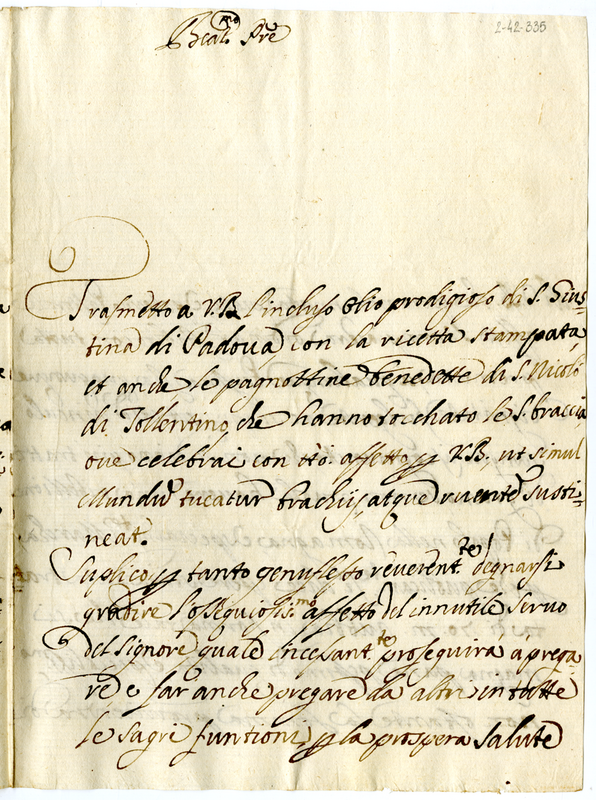 Beat.mo Pre
2-42-335
Trasmetto a V.B. l'incluso Olio prodigioso di S. Gius-
tina di Padova con la ricetta stampata,
et anche le pagnottine benedette di S. Nicolò
di Tollentino che hanno tocchato le S. braccia
ove celebrai con tto. affetto p V.B., ut simul
Mundū tucatur brachijs atque ruente susti-
neat.
Suplico p tanto genuflesso reverent.te degnarsi
gradire l'ossequiosis.mo affetto del innutile servo
del Signore quale incesant.te proseguira a prega-
re e far anche pregare da altri in tutte
le sagre funtioni p la prospera salute